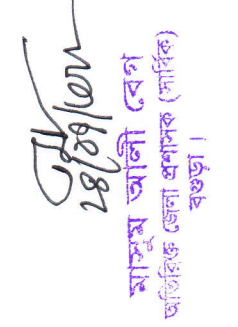 ২৪/০৭/২০১৮
মাসুম আলী বেগ
অতিরিক্ত জেলা প্রশাসক (সার্বিক)
বগুড়া।